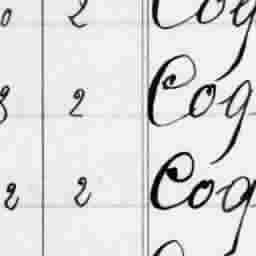 0 2 Cog
8 2 Cog
2 2 Cog